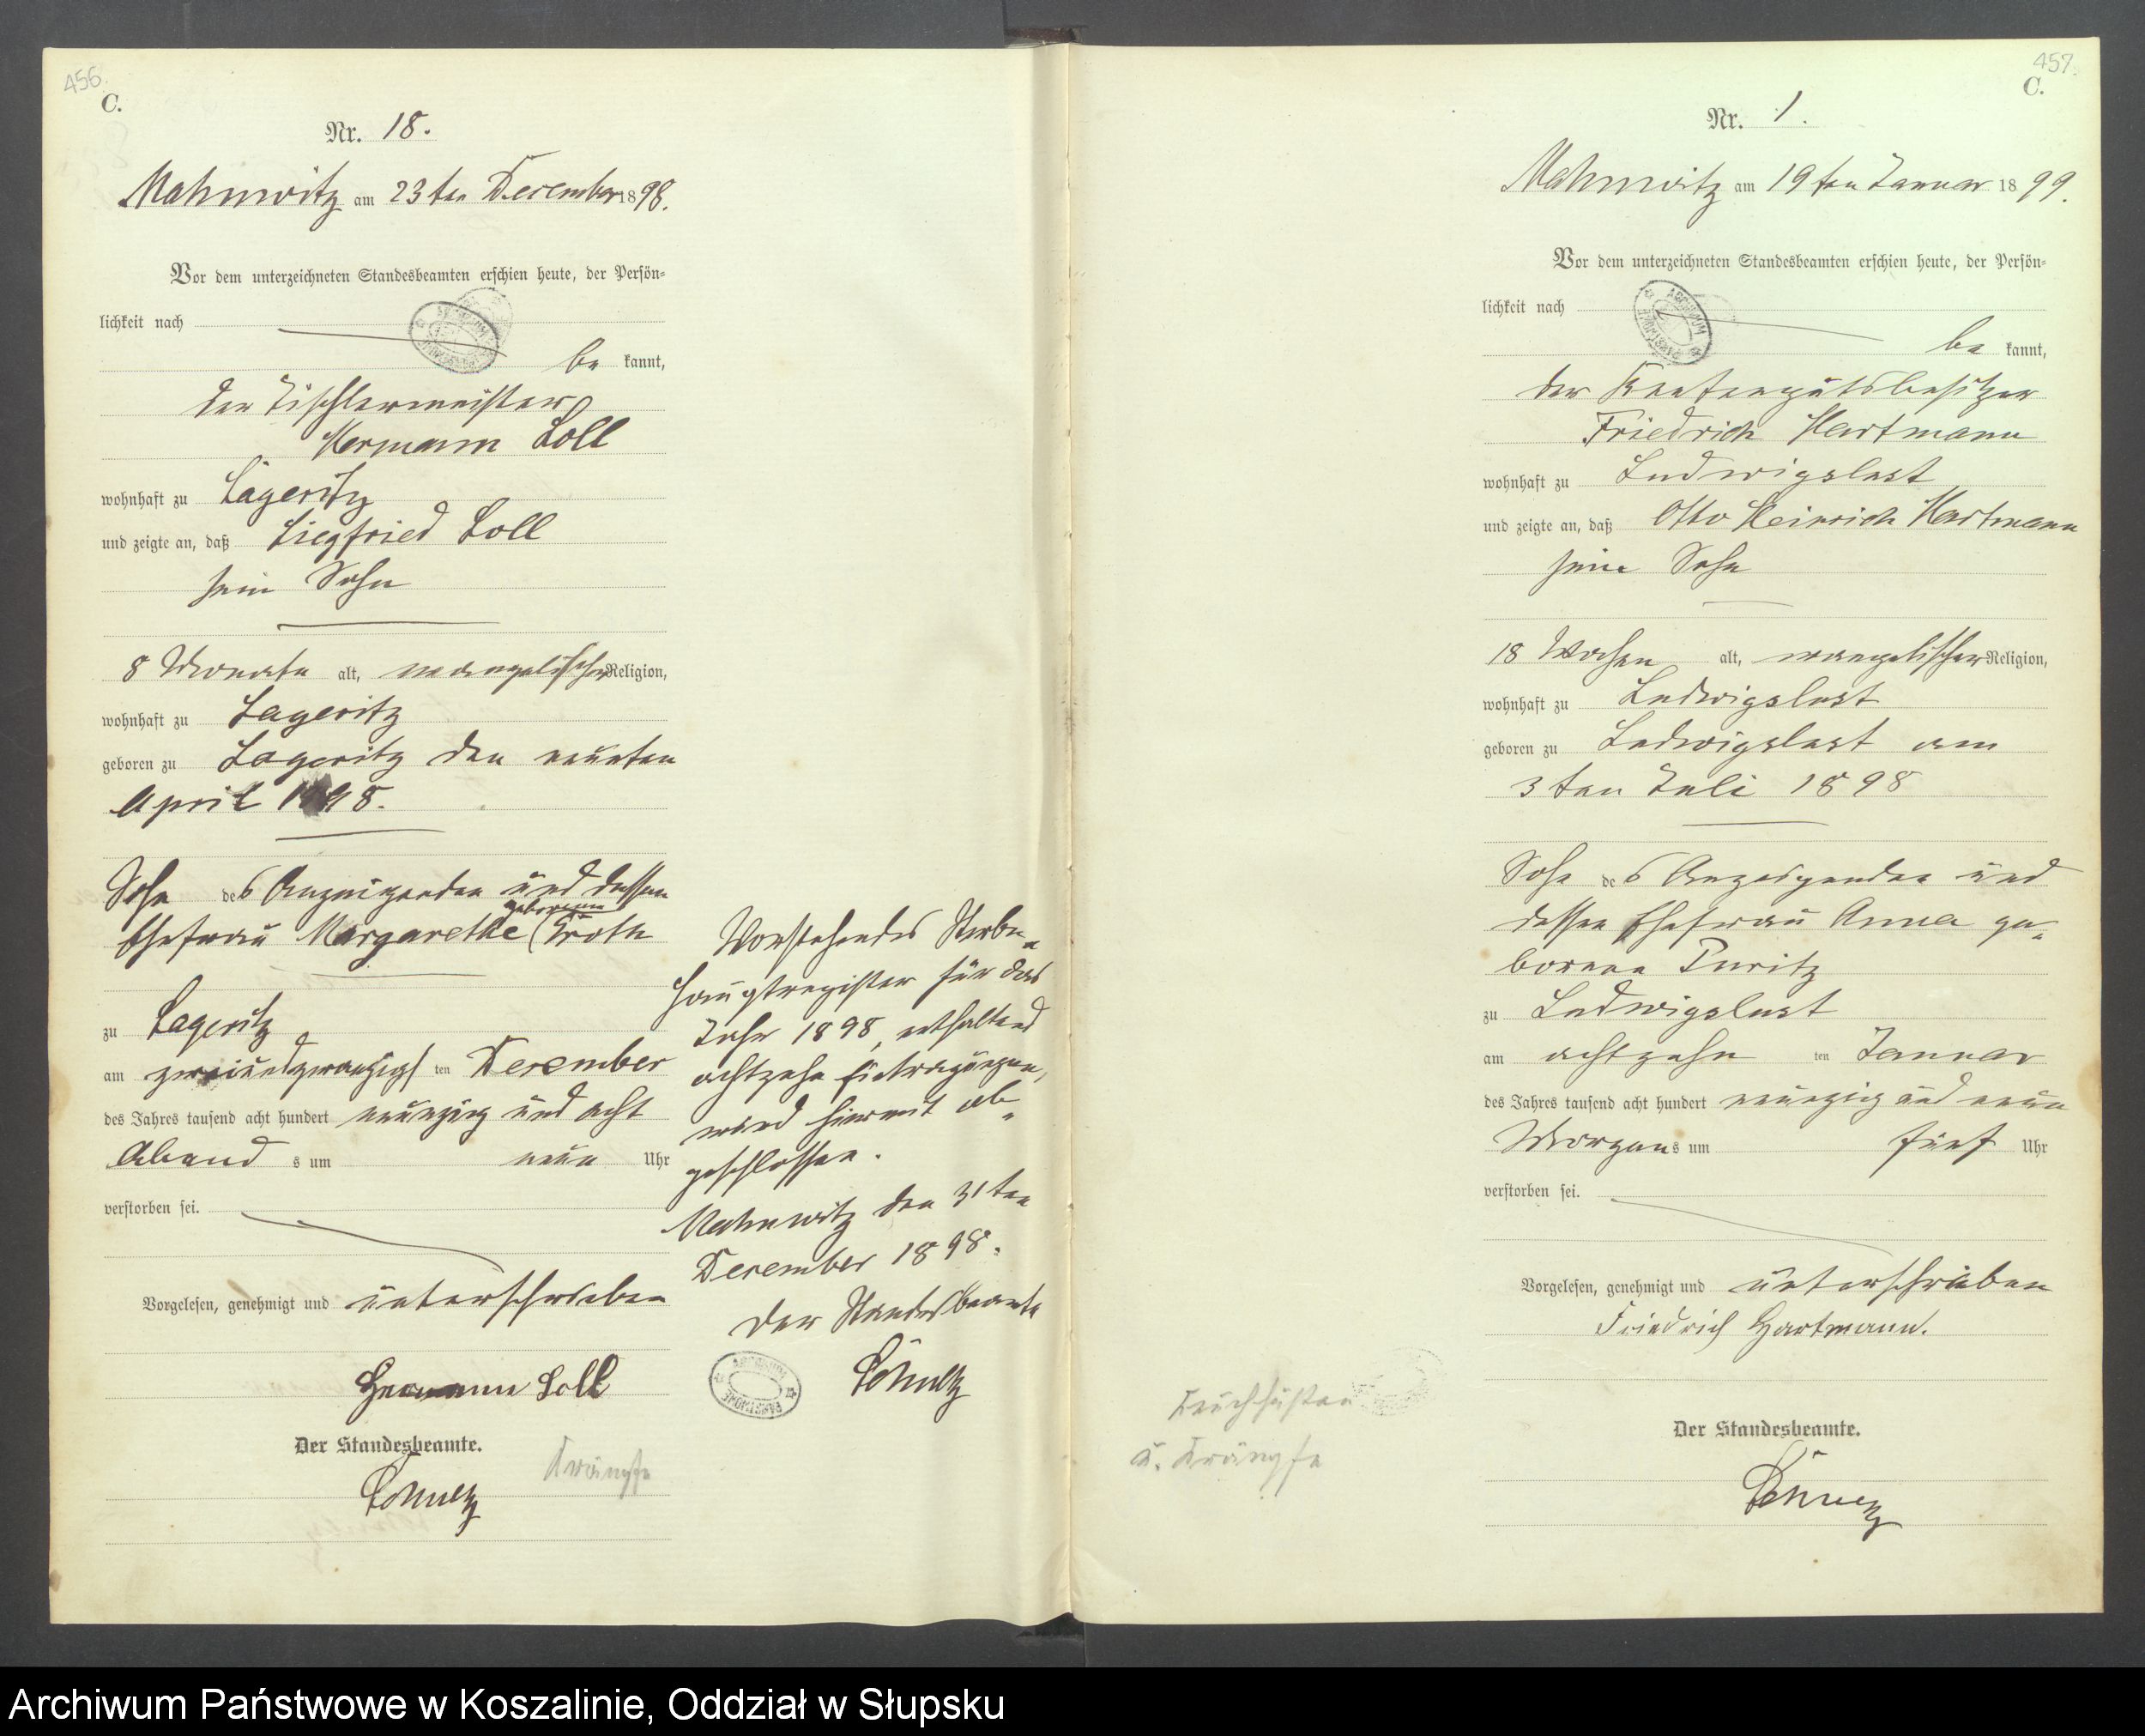 456.
C.
Nr. 18.
Mahnwitz am 23ten December 1898.
Vor dem unterzeichneten Standesbeamten erschien heute, der Persön=
lichkeit nach
be kannt,
der Tischlermeister
Hermann Loll
wohnhaft zu Lageritz
und zeigte an, daß Siegfried Loll
sein Sohn
8 Monate alt, evangelischer Religion,
wohnhaft zu Lageritz
geboren zu Lageritz den neunten
April 1898.
Sohn des Anzeigenden und dessen
Ehefrau Margarethe (geborenen Groth
zu Lageritz
am zweiundzwanzigsten December
des Jahres tausend acht hundert neunzig und acht
Abends um neun Uhr
verstorben sei.
Vorgelesen, genehmigt und unterschrieben
Hermann Loll
Der Standesbeamte.
Schultz
Krämpfe
Vorstehendes Sterbe=
Hauptregister für das
Jahr 1898, enthaltend
achtzehn Eintragungen,
wird hiermit ab=
geschlossen.
Mahnwitz den 31ten
December 1898.
Der Standesbeamte
Schultz
457.
C.
Nr. 1.
Mahnwitz am 19ten Januar 1899.
Vor dem unterzeichneten Standesbeamten erschien heute, der Persön=
lichkeit nach
be kannt,
der Rentengutsbesitzer
Friedrich Hartmann
wohnhaft zu Ludwigslust
und zeigte an, daß Otto Heinrich Hartmann
sein Sohn
18 Wochen alt, evangelischer Religion,
wohnhaft zu Ludwigslust
geboren zu Ludwigslust am
3ten Juli 1898
Sohn des Anzeigenden und
dessen Ehefrau Anna ge=
borene Puritz
zu Ludwigslust
am achtzehn ten Januar
des Jahres tausend acht hundert neunzig und neun
Morgens um fünf Uhr
verstorben sei.
Vorgelesen, genehmigt und unterschrieben
Friedrich Hartmann.
Der Standesbeamte.
Schultz
Keuchhusten
u. Krämpfe
Archiwum Państwowe w Koszalinie, Oddział w Słupsku